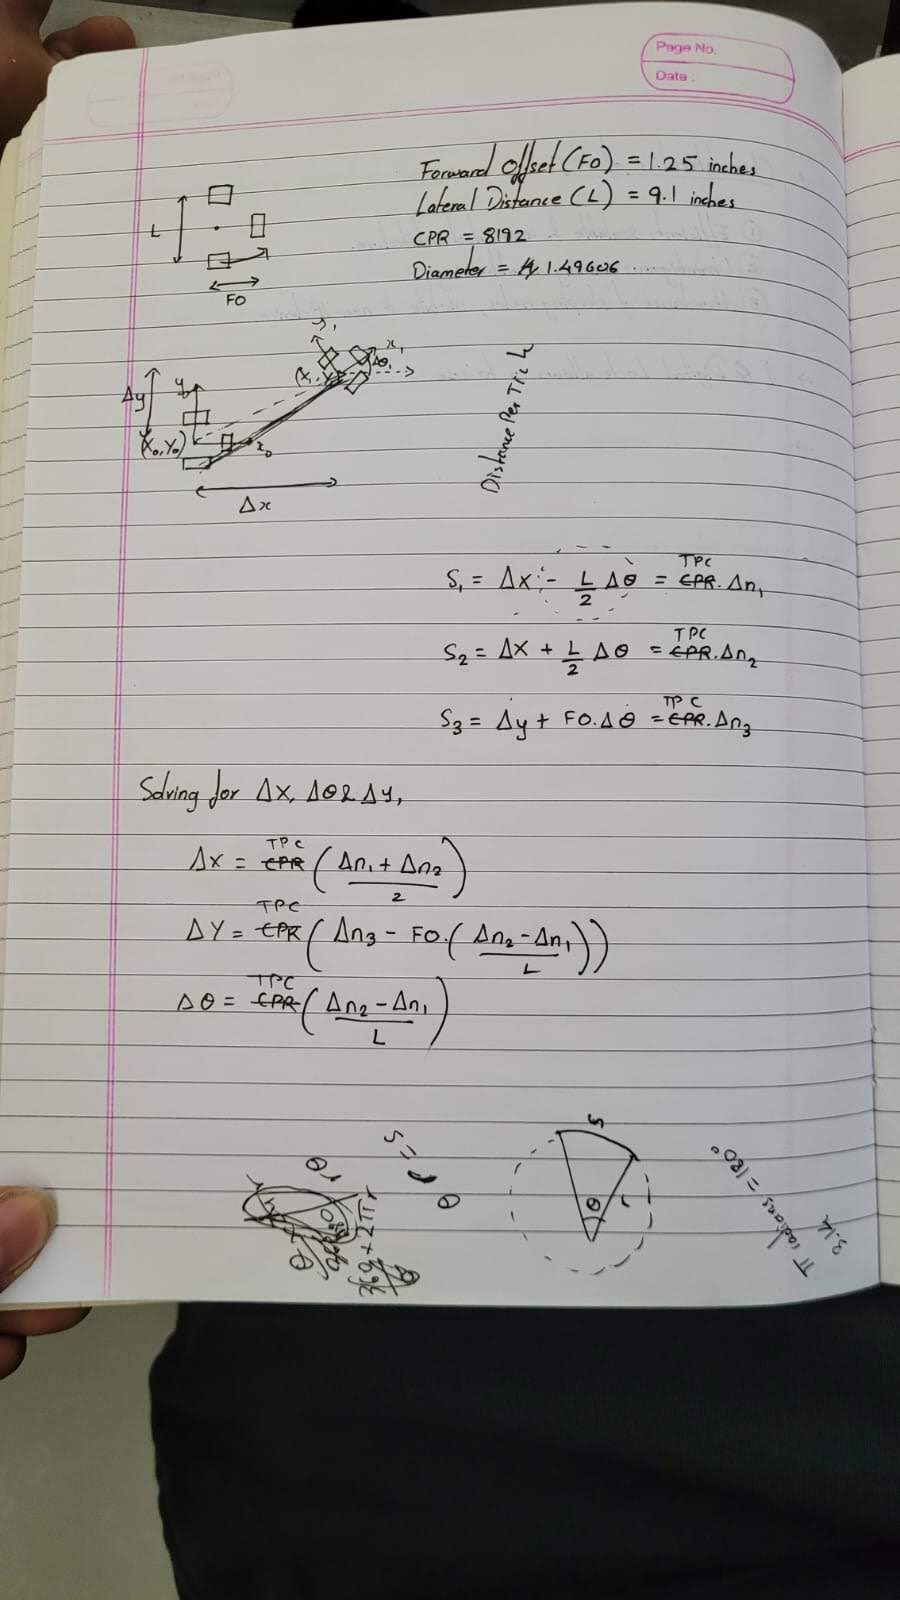 Page No.
Date .
Forward Offset (FO) = 1.25 inches
Lateral Distance (L) = 9.1 inches
CPR = 8192
Diameter = 1.49606 ....
L
FO
y₁
x₁
Δθ₁
(X₁, Y₁)
Δy
y₀
(X₀, Y₀)
x₀
Δx
Distance Per Tick
S₁ = Δx - L/2 Δθ = CPR TPC . Δn₁
S₂ = Δx + L/2 Δθ = CPR TPC . Δn₂
S₃ = Δy + FO.Δθ = CPR TPC . Δn₃
Solving for Δx, Δθ & Δy,
Δx = CPR TPC ( Δn₁ + Δn₂ / 2 )
ΔY = CPR TPC ( Δn₃ - FO. ( Δn₂ - Δn₁ / L ) )
Δθ = CPR TPC ( Δn₂ - Δn₁ / L )
S
θ
r
S = r θ
π radians = 180°
3.14
360 × 2πr